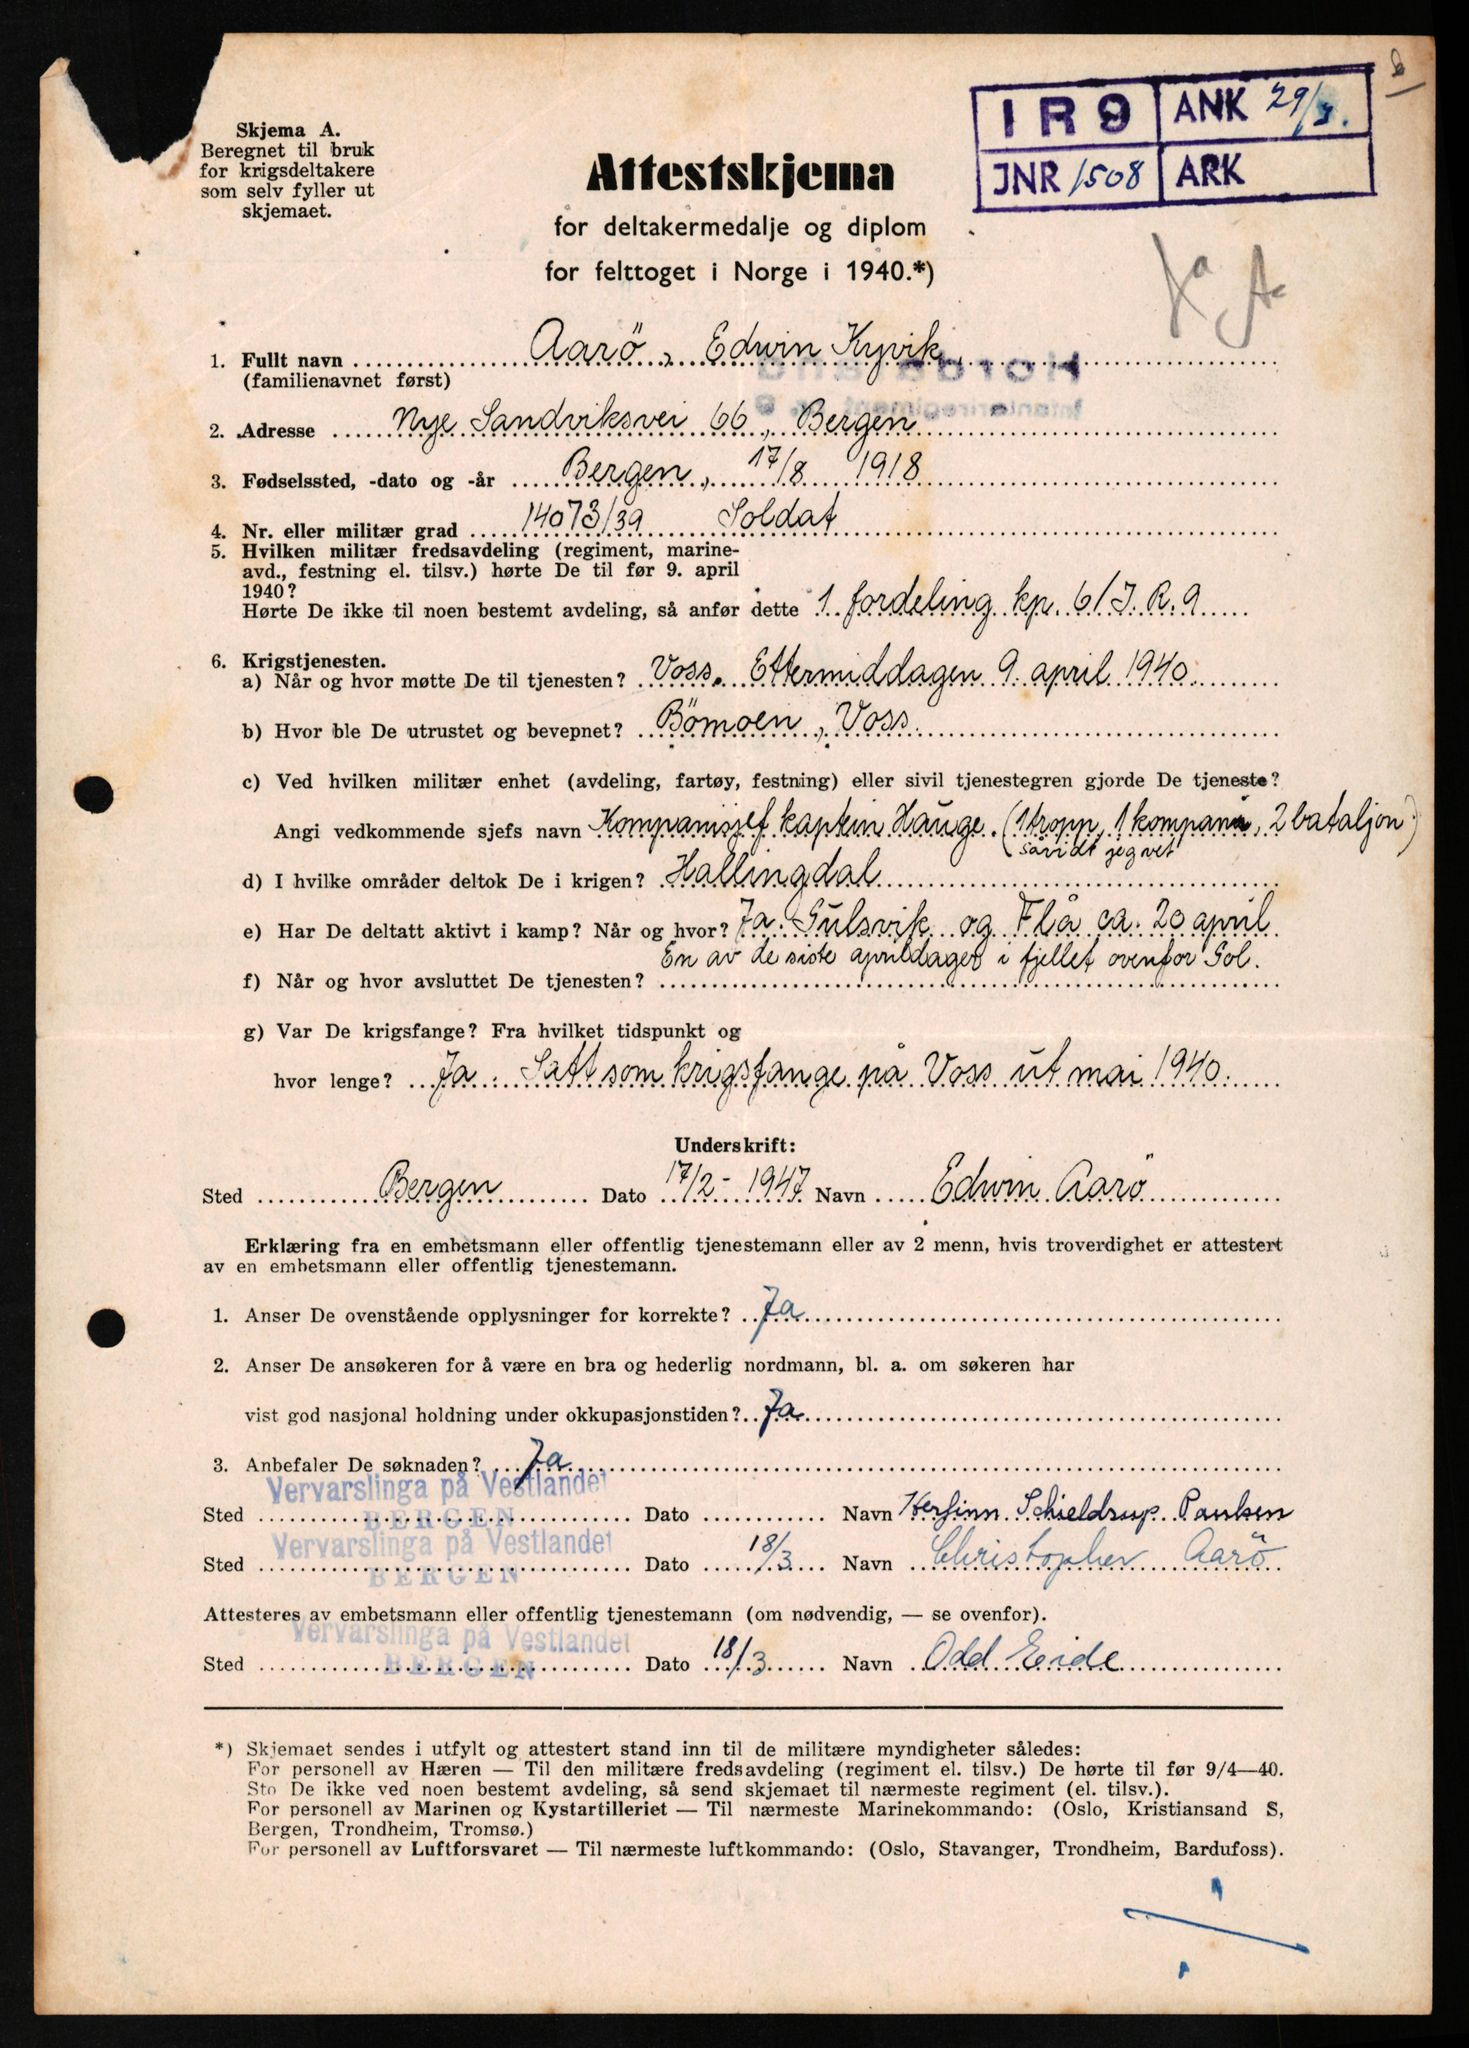 Skjema A.
Beregnet til bruk
for krigsdeltakere
som selv fyller ut
skjemaet.
IR9 ANK 29/3.
JNR 1508 ARK
Attestskjema
for deltakermedalje og diplom
for felttoget i Norge i 1940.*)
Ja A
1. Fullt navn Aarö, Edwin Kyvik
(familienavnet først)
2. Adresse Nye Sandviksvei 66, Bergen
3. Fødselssted, -dato og -år Bergen, 17/8 1918
4. Nr. eller militær grad 14073/39 Soldat
5. Hvilken militær fredsavdeling (regiment, marine-
avd., festning el. tilsv.) hørte De til før 9. april
1940?
Hørte De ikke til noen bestemt avdeling, så anfør dette 1 fordeling kp. 6/J.R.9
6. Krigstjenesten.
a) Når og hvor møtte De til tjenesten? Voss. Ettermiddagen 9. april 1940.
b) Hvor ble De utrustet og bevepnet? Bömoen, Voss.
c) Ved hvilken militær enhet (avdeling, fartøy, festning) eller sivil tjenestegren gjorde De tjeneste?
Angi vedkommende sjefs navn Kompanisjef kaptein Hauge. (1 tropp, 1 kompani, 2 bataljon)
såvidt jeg vet
d) I hvilke områder deltok De i krigen? Hallingdal
e) Har De deltatt aktivt i kamp? Når og hvor? Ja. Gulsvik og Flå ca. 20 april
En av de siste aprildager i fjellet ovenfor Gol.
f) Når og hvor avsluttet De tjenesten?
g) Var De krigsfange? Fra hvilket tidspunkt og
hvor lenge? Ja. Satt som krigsfange på Voss ut mai 1940.
Underskrift:
Sted Bergen Dato 17/2 - 1947 Navn Edwin Aarö
Erklæring fra en embetsmann eller offentlig tjenestemann eller av 2 menn, hvis troverdighet er attestert
av en embetsmann eller offentlig tjenestemann.
1. Anser De ovenstående opplysninger for korrekte? Ja
2. Anser De ansøkeren for å være en bra og hederlig nordmann, bl. a. om søkeren har
vist god nasjonal holdning under okkupasjonstiden? Ja
3. Anbefaler De søknaden? Ja
Vervarslinga på Vestlandet
Sted BERGEN Dato Navn Herfinn Schieldrup Paulsen
Vervarslinga på Vestlandet
Sted BERGEN Dato 18/3 Navn Christopher Aarö
Attesteres av embetsmann eller offentlig tjenestemann (om nødvendig, — se ovenfor).
Vervarslinga på Vestlandet
Sted BERGEN Dato 18/3 Navn Odd Eide
*) Skjemaet sendes i utfylt og attestert stand inn til de militære myndigheter således:
For personell av Hæren — Til den militære fredsavdeling (regiment el. tilsv.) De hørte til før 9/4—40.
Sto De ikke ved noen bestemt avdeling, så send skjemaet til nærmeste regiment (el. tilsv.).
For personell av Marinen og Kystartilleriet — Til nærmeste Marinekommando: (Oslo, Kristiansand S,
Bergen, Trondheim, Tromsø.)
For personell av Luftforsvaret — Til nærmeste luftkommando: (Oslo, Stavanger, Trondheim, Bardufoss).